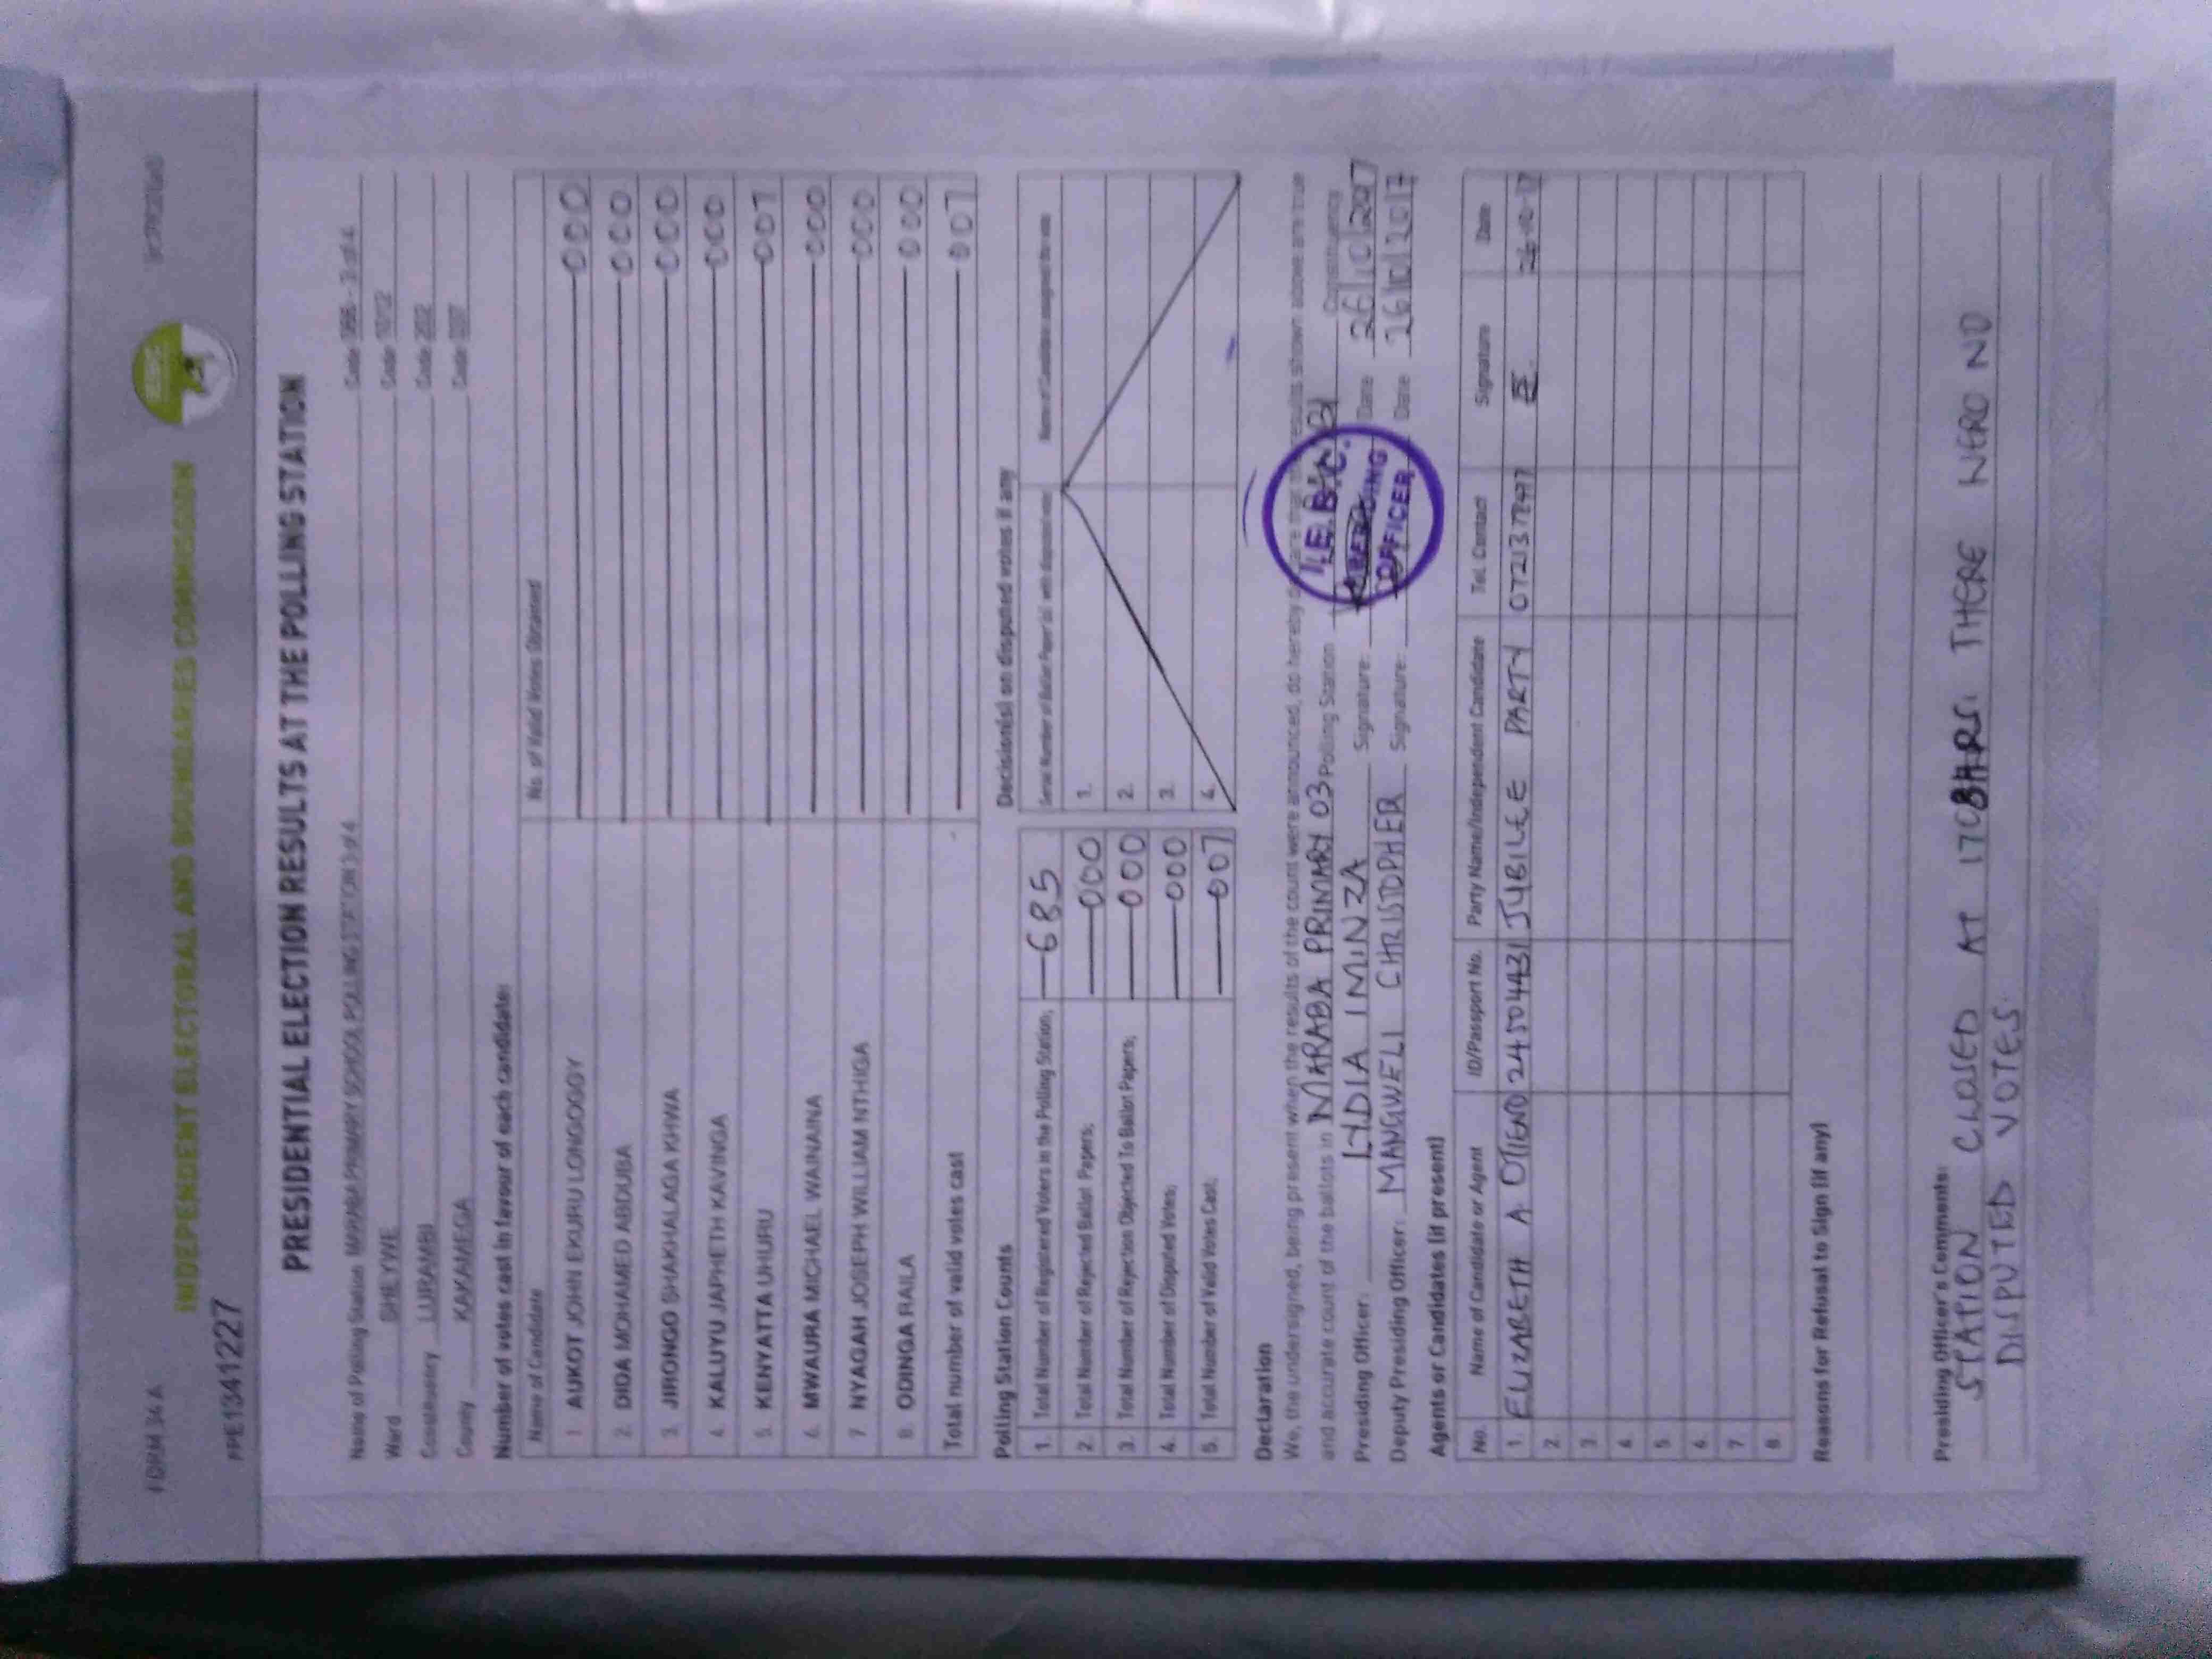 FORM 34 A
INDEPENDENT ELECTORAL AND BOUNDARIES COMMISSION
PPE1341227
PRESIDENTIAL ELECTION RESULTS AT THE POLLING STATION
Name of Polling Station MARABA PRIMARY SCHOOL POLLING STATION 3 of 4 Code 066 - 3 of 4
Ward SHEYWE Code 1012
Constituency LURAMBI Code 202
County KAKAMEGA Code 037
Number of votes cast in favour of each candidate:
Name of Candidate No. of Valid Votes Obtained
1. AUKOT JOHN EKURU LONGOGGY 000
2. DIDA MOHAMED ABDUBA 000
3. JIRONGO SHAKHALAGA KHWA 000
4. KALUYU JAPHETH KAVINGA 000
5. KENYATTA UHURU 007
6. MWAURA MICHAEL WAINAINA 000
7. NYAGAH JOSEPH WILLIAM NTHIGA 000
8. ODINGA RAILA 000
Total number of valid votes cast 007
Polling Station Counts
1. Total Number of Registered Voters in the Polling Station; 685
2. Total Number of Rejected Ballot Papers; 000
3. Total Number of Rejection Objected To Ballot Papers; 000
4. Total Number of Disputed Votes; 000
5. Total Number of Valid Votes Cast; 007
Decision(s) on disputed votes if any
1.
2.
3.
4.
Declaration
We, the undersigned, being present when the results of the count were announced, do hereby declare that the results shown above are true
and accurate count of the ballots in MARABA PRIMARY 03 Polling Station Constituency
Presiding Officer: LYDIA IMINZA Signature: Date 26/10/2017
Deputy Presiding Officer: MANGWELI CHRISTOPHER Signature: Date 26/10/2017
I.E.B.C.
PRESIDING
OFFICER
Agents or Candidates (if present)
No. Name of Candidate or Agent ID/Passport No. Party Name/Independent Candidate Tel. Contact Signature Date
1. ELIZABETH A OTIENO 24504431 JUBILEE PARTY 26-10-17
2.
3.
4.
5.
6.
7.
8.
Reasons for Refusal to Sign (if any)
Presiding Officer's Comments:
STATION CLOSED AT 1708HRS. THERE WERO NO
DISPUTED VOTES.